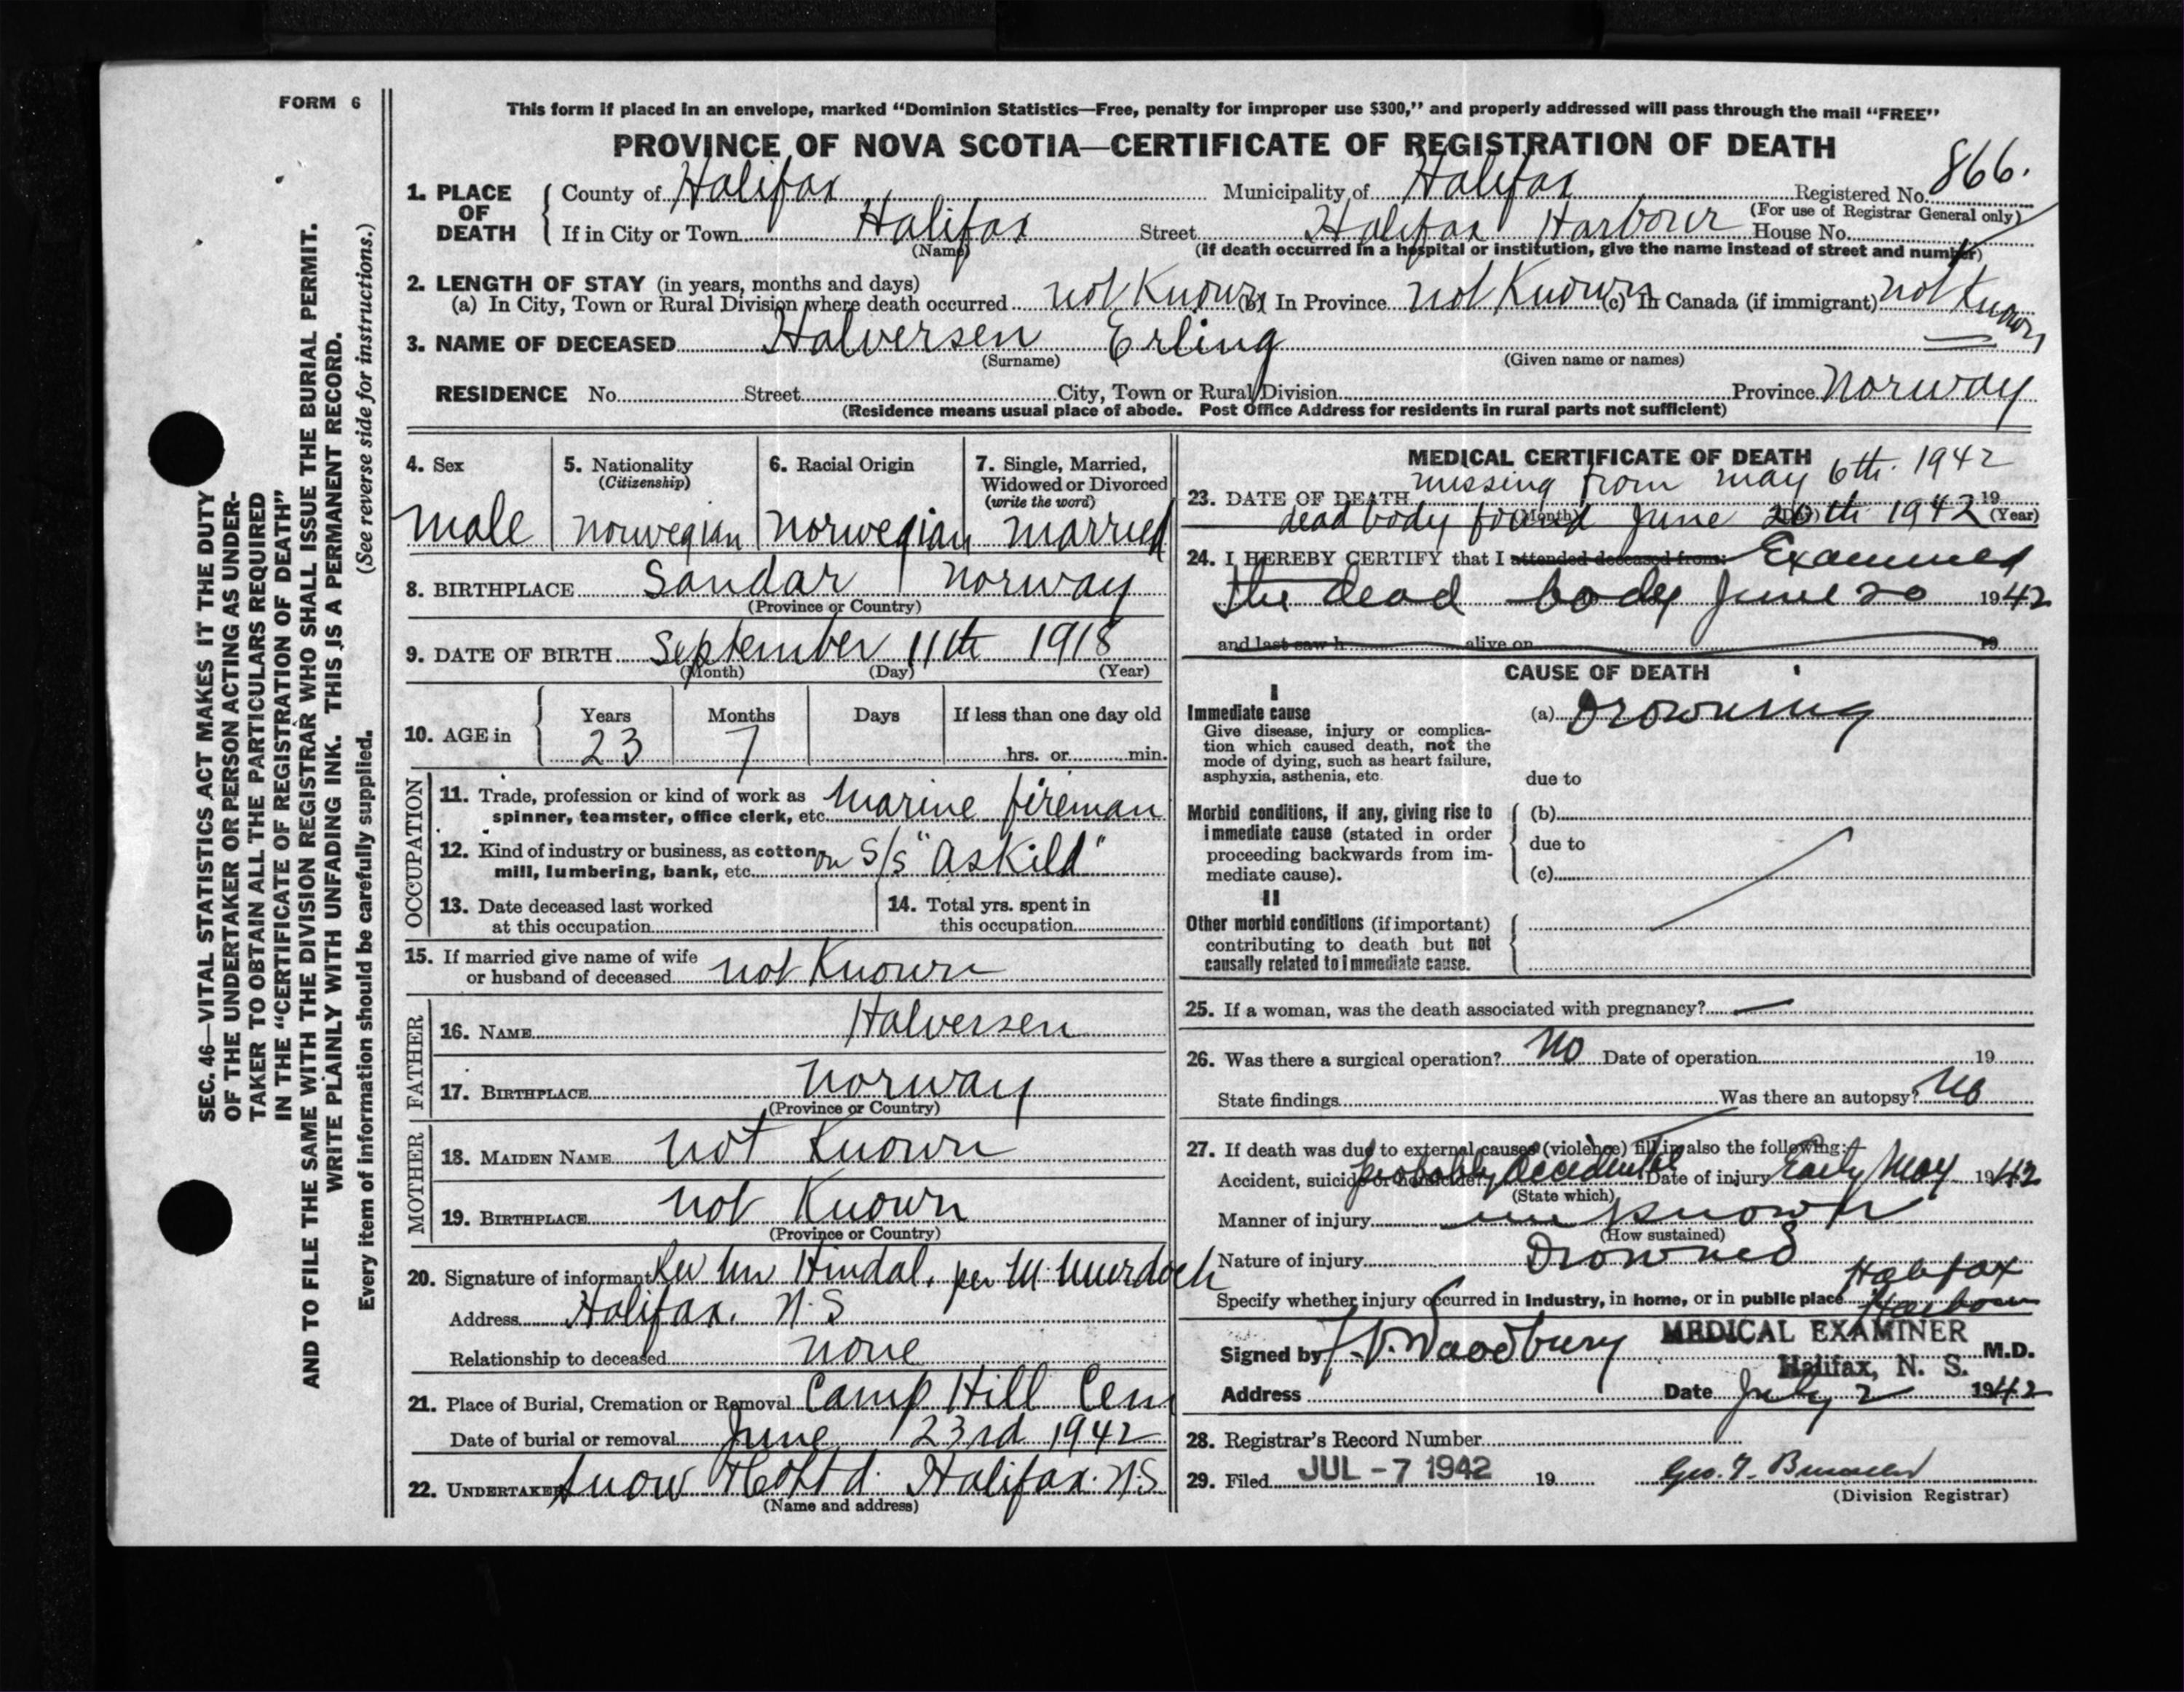 FORM 6
This form if placed in an envelope, marked “Dominion Statistics—Free, penalty for improper use $300,” and properly addressed will pass through the mail “FREE”
PROVINCE OF NOVA SCOTIA—CERTIFICATE OF REGISTRATION OF DEATH
866.
1. PLACE OF DEATH
County of Halifax Municipality of Halifax Registered No.
(For use of Registrar General only)
If in City or Town Halifax Street Halifax Harbour House No.
(Name) (If death occurred in a hospital or institution, give the name instead of street and number)
2. LENGTH OF STAY (in years, months and days)
(a) In City, Town or Rural Division where death occurred not Known (b) In Province not Known (c) In Canada (if immigrant) not Known
3. NAME OF DECEASED Halversen Erling
(Surname) (Given name or names)
RESIDENCE No. Street City, Town or Rural Division Province Norway
(Residence means usual place of abode. Post Office Address for residents in rural parts not sufficient)
4. Sex 5. Nationality 6. Racial Origin 7. Single, Married,
(Citizenship) Widowed or Divorced
(write the word)
male norwegian norwegian married
8. BIRTHPLACE Sandar Norway
(Province or Country)
9. DATE OF BIRTH September 11th 1918
(Month) (Day) (Year)
10. AGE in Years Months Days If less than one day old
23 7 hrs. or min.
OCCUPATION
11. Trade, profession or kind of work as Marine fireman
spinner, teamster, office clerk, etc.
12. Kind of industry or business, as cotton on S/S "Askild"
mill, lumbering, bank, etc.
13. Date deceased last worked 14. Total yrs. spent in
at this occupation this occupation
15. If married give name of wife
or husband of deceased not Known
FATHER
16. NAME Halversen
17. BIRTHPLACE Norway
(Province or Country)
MOTHER
18. MAIDEN NAME not Known
19. BIRTHPLACE not Known
(Province or Country)
20. Signature of informant Rev Hindal, per M Murdoch
Address Halifax. N.S
Relationship to deceased none
21. Place of Burial, Cremation or Removal Camp Hill Cem
Date of burial or removal June 23rd 1942
22. UNDERTAKER Snow & Co Ltd. Halifax. N.S
(Name and address)
MEDICAL CERTIFICATE OF DEATH
missing from may 6th. 1942
23. DATE OF DEATH 19
dead body found June 20th 1942
(Month) (Day) (Year)
24. I HEREBY CERTIFY that I attended deceased from: Examined
the dead body June 20 1942
and last saw h alive on 19
CAUSE OF DEATH
I
Immediate cause (a) Drowning
Give disease, injury or complica-
tion which caused death, not the
mode of dying, such as heart failure,
asphyxia, asthenia, etc. due to
Morbid conditions, if any, giving rise to (b)
immediate cause (stated in order due to
proceeding backwards from im-
mediate cause). (c)
II
Other morbid conditions (if important)
contributing to death but not
causally related to immediate cause.
25. If a woman, was the death associated with pregnancy? —
26. Was there a surgical operation? No Date of operation 19
State findings Was there an autopsy? No
27. If death was due to external causes (violence) fill in also the following:
Accident, suicide or homicide? probably Accidental Date of injury Early May 1942
(State which)
Manner of injury unknown
(How sustained)
Nature of injury Drowned
Specify whether injury occurred in industry, in home, or in public place Halifax Harbour
MEDICAL EXAMINER
Signed by Woodbury M.D.
Halifax, N. S.
Address Date July 2 1942
28. Registrar's Record Number
29. Filed JUL -7 1942 19
(Division Registrar)
SEC. 46—VITAL STATISTICS ACT MAKES IT THE DUTY
OF THE UNDERTAKER OR PERSON ACTING AS UNDER-
TAKER TO OBTAIN ALL THE PARTICULARS REQUIRED
IN THE “CERTIFICATE OF REGISTRATION OF DEATH”
AND TO FILE THE SAME WITH THE DIVISION REGISTRAR WHO SHALL ISSUE THE BURIAL PERMIT.
WRITE PLAINLY WITH UNFADING INK. THIS IS A PERMANENT RECORD.
Every item of information should be carefully supplied. (See reverse side for instructions.)